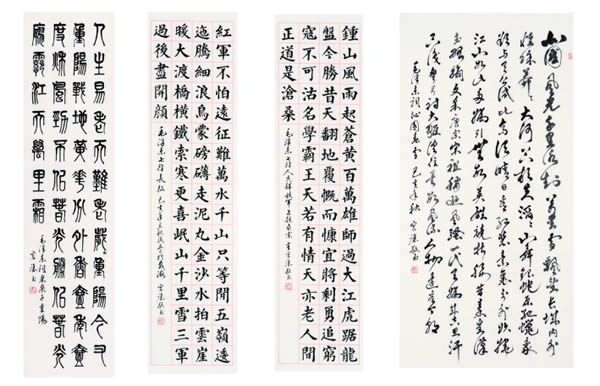 北國風光千里冰封萬里雪飄望長城內外
惟餘莽莽大河上下頓失滔滔山舞銀蛇原馳蠟象
欲與天公試比高須晴日看紅裝素裹分外妖嬈
江山如此多嬌引無數英雄競折腰惜秦皇漢
武略輸文采唐宗宋祖稍遜風騷一代天驕成吉思汗
只識彎弓射大雕俱往矣數風流人物還看今朝
毛澤東詞沁園春雪 己亥年秋
鍾山風雨起蒼黃百萬雄師過大江虎踞龍
盤今勝昔天翻地覆慨而慷宜將剩勇追窮
寇不可沽名學霸王天若有情天亦老人間
正道是滄桑 毛澤東七律人民解放軍占領南京
紅軍不怕遠征難萬水千山只等閒五嶺逶
迤騰細浪烏蒙磅礴走泥丸金沙水拍雲崖
暖大渡橋橫鐵索寒更喜岷山千里雪三軍
過後盡開顏 毛澤東七律長征 己亥年
人生易老天難老歲歲重陽今又
重陽戰地黃華分外香壹年壹
度秋風勁不似春光勝似春光
寥廓江天萬里霜
毛澤東詞采桑子重陽